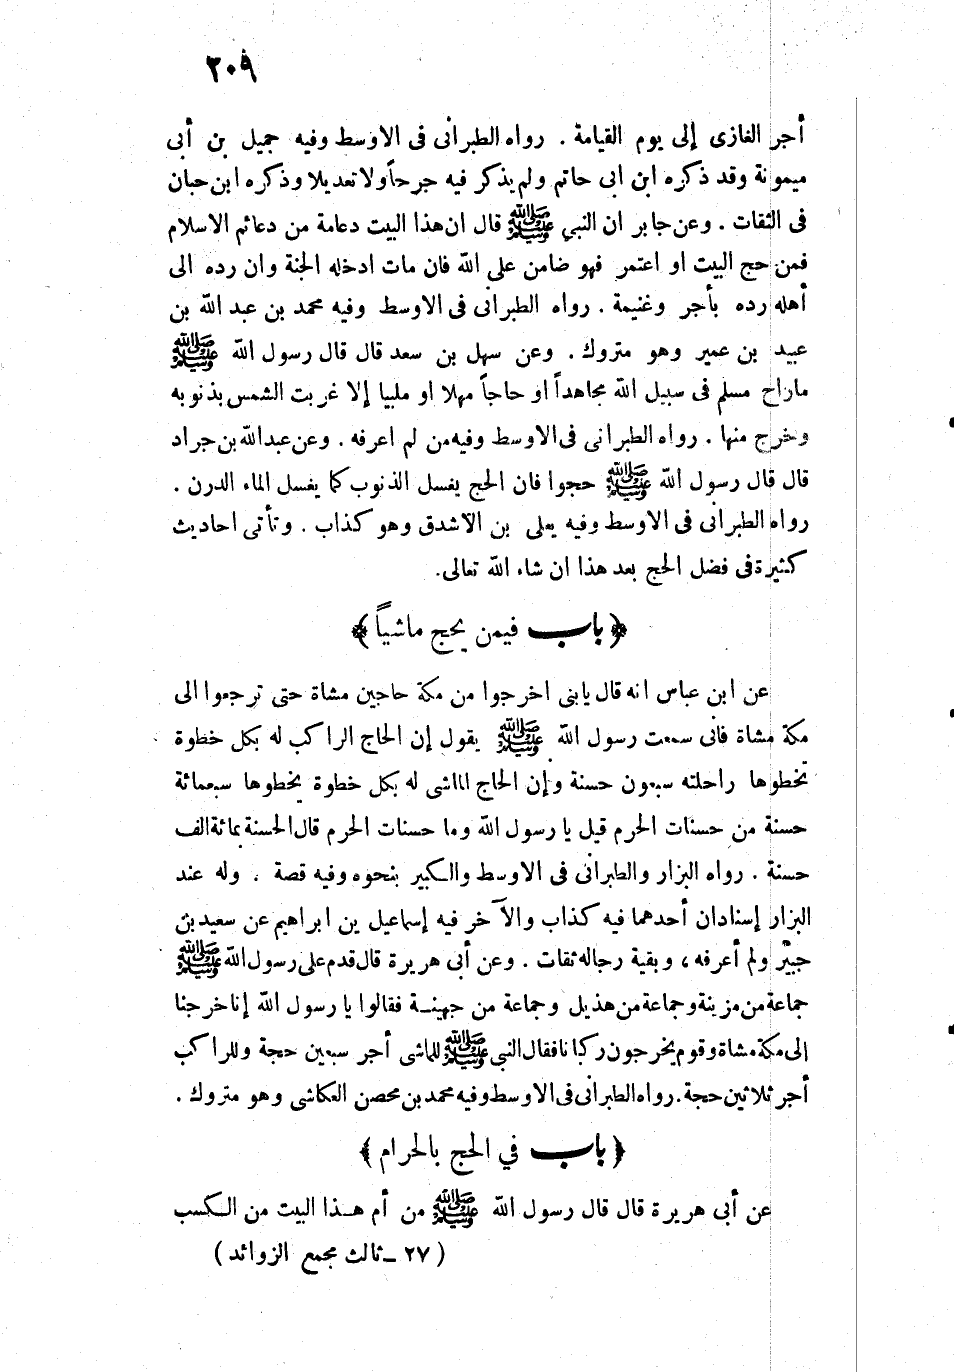 ٢٠٩
أجر الغازى إلى يوم القيامة . رواه الطبرانى فى الاوسط وفيه جميل بن أبى
ميمونة وقد ذكره ابن ابى حاتم ولم يذكر فيه جرحاً ولا تعديلا وذكره ابن حبان
فى الثقات . وعن جابر ان النبي ﷺ قال ان هذا البيت دعامة من دعائم الاسلام
فمن حج البيت او اعتمر فهو ضامن على الله فان مات ادخله الجنة وان رده الى
أهله رده بأجر وغنيمة . رواه الطبرانى فى الاوسط وفيه محمد بن عبد الله بن
عبيد بن عمير وهو متروك . وعن سهل بن سعد قال قال رسول الله ﷺ
ماراح مسلم فى سبيل الله مجاهداً او حاجاً مهلا او ملبيا إلا غربت الشمس بذنوبه
وخرج منها . رواه الطبرانى فى الاوسط وفيه من لم اعرفه . وعن عبدالله بن جراد
قال قال رسول الله ﷺ حجوا فان الحج يغسل الذنوب كما يغسل الماء الدرن .
رواه الطبرانى فى الاوسط وفيه يعلى بن الاشدق وهو كذاب . وتأتى احاديث
كثيرة فى فضل الحج بعد هذا ان شاء الله تعالى .
﴿ باب فيمن يحج ماشياً ﴾
عن ابن عباس انه قال يابنى اخرجوا من مكة حاجين مشاة حتى ترجعوا الى
مكة مشاة فانى سمعت رسول الله ﷺ يقول إن الحاج الراكب له بكل خطوة
تخطوها راحلته سبعون حسنة وإن الحاج الماشى له بكل خطوة يخطوها سبعمائة
حسنة من حسنات الحرم قيل يا رسول الله وما حسنات الحرم قال الحسنة بمائة الف
حسنة . رواه البزار والطبرانى فى الاوسط والكبير بنحوه وفيه قصة . وله عند
البزار إسنادان أحدهما فيه كذاب والآخر فيه إسماعيل بن ابراهيم عن سعيد بن
جبير ولم أعرفه ، وبقية رجاله ثقات . وعن أبى هريرة قال قدم على رسول الله ﷺ
جماعة من مزينة وجماعة من هذيل وجماعة من جهينة فقالوا يا رسول الله إنا خرجنا
إلى مكة مشاة وقوم يخرجون ركبانا فقال النبي ﷺ للماشى أجر سبعين حجة وللراكب
أجر ثلاثين حجة . رواه الطبرانى فى الاوسط وفيه محمد بن محصن العكاشى وهو متروك .
﴿ باب في الحج بالحرام ﴾
عن أبى هريرة قال قال رسول الله ﷺ من أم هذا البيت من الكسب
( ٢٧ ــ ثالث مجمع الزوائد )